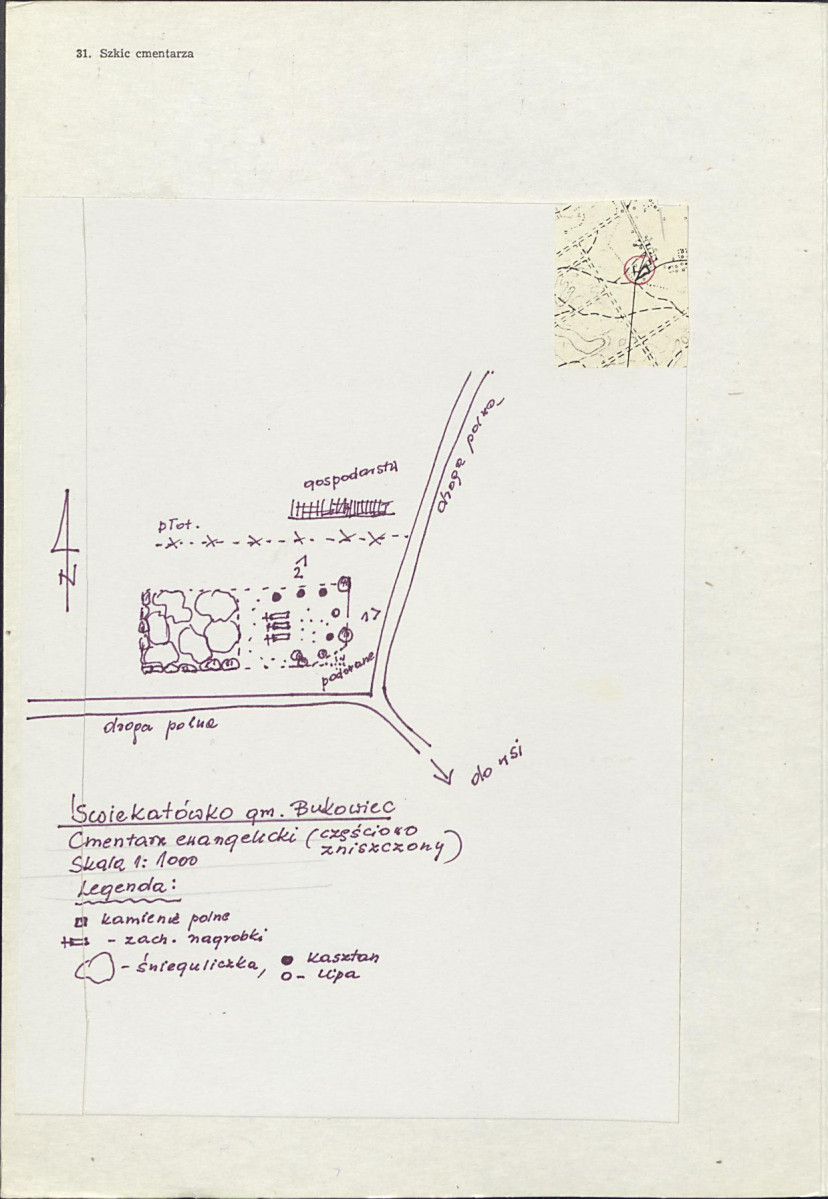 31. Szkic cmentarza
gospodarstw
droga polna
płot.
N
podorane
droga polna
do wsi
Świekatówko gm. Bukowiec
Cmentarz ewangelicki (częściowo zniszczony)
Skala 1:1000
Legenda:
kamienie polne
- zach. nagrobki
- śnieguliczka, kasztan
- lipa